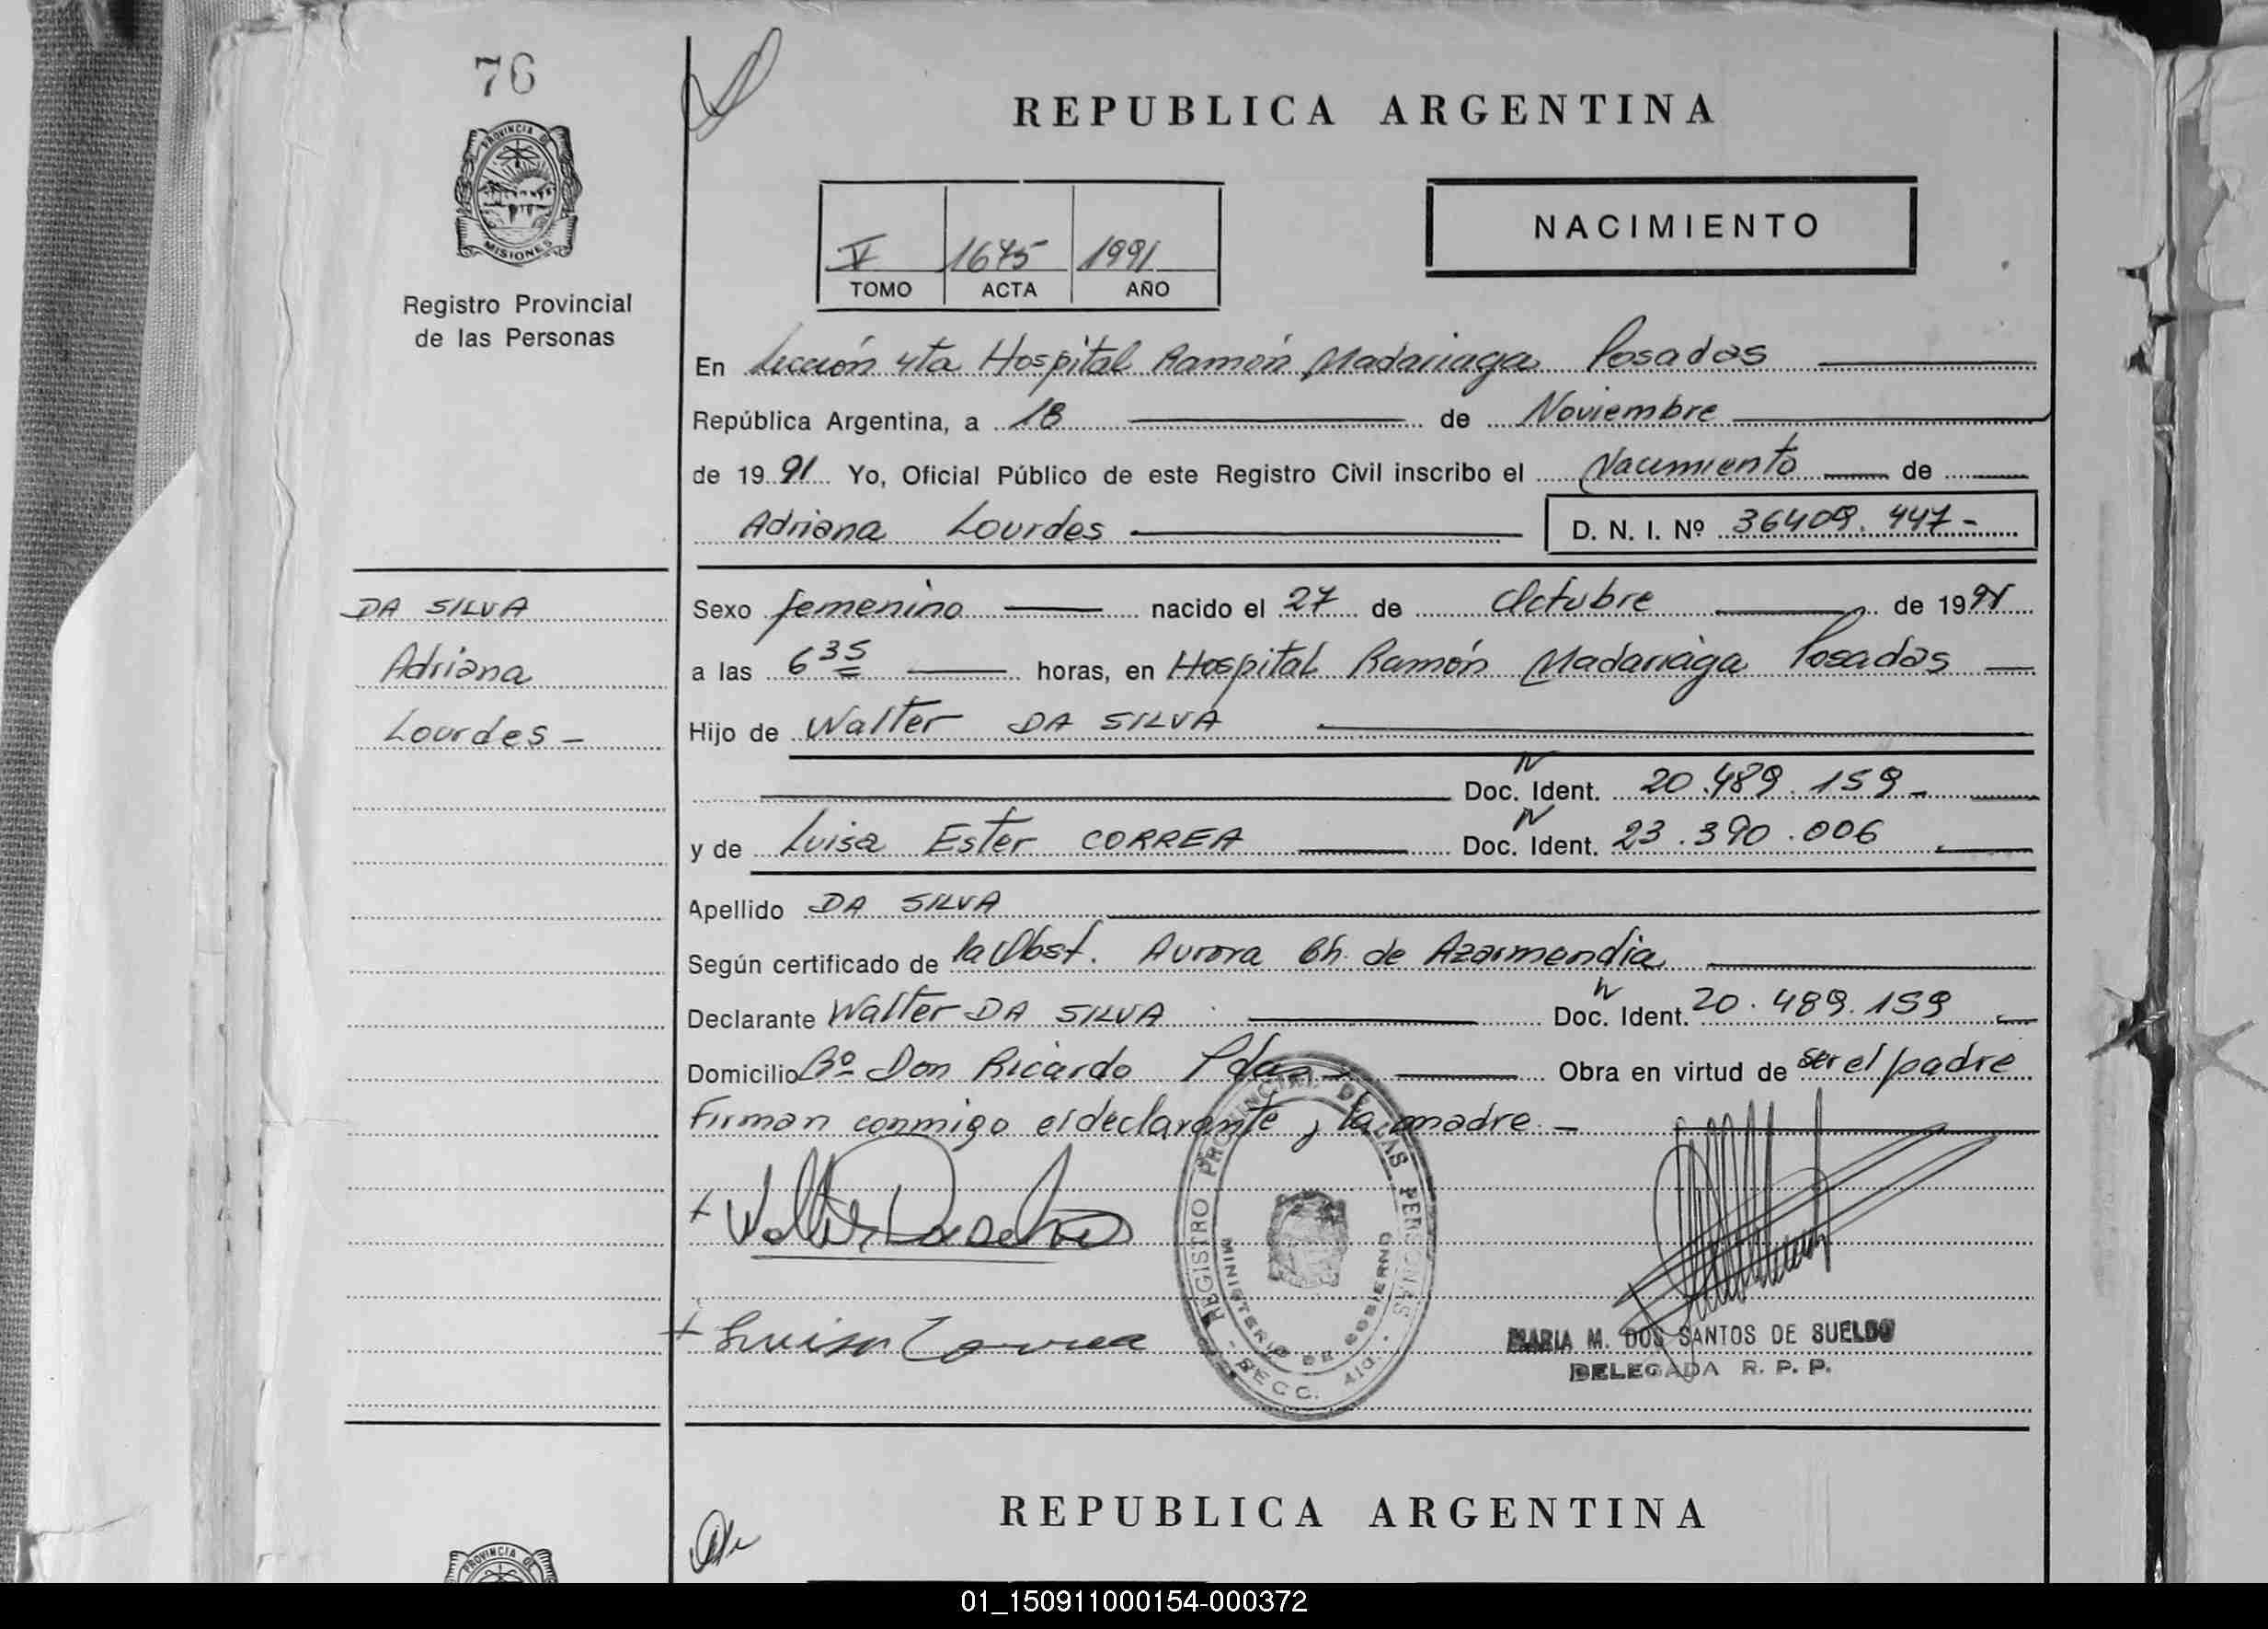 76
PROVINCIA DE
MISIONES
Registro Provincial
de las Personas
REPUBLICA ARGENTINA
NACIMIENTO
V 1675 1991
TOMO ACTA AÑO
En Sección 4ta Hospital Ramón Madariaga Posadas
República Argentina, a 18 de Noviembre
de 1991 Yo, Oficial Público de este Registro Civil inscribo el Nacimiento de
Adriana Lourdes D. N. I. Nº 36409.447-
DA SILVA
Adriana
Lourdes-
Sexo femenino nacido el 27 de Octubre de 1991
a las 6 35 horas, en Hospital Ramón Madariaga Posadas
Hijo de Walter DA SILVA
Doc. Ident. 20.489.159-
y de Luisa Ester CORREA Doc. Ident. 23.390.006
Apellido DA SILVA
Según certificado de la Obst. Aurora Ch. de Azarmendia
Declarante Walter DA SILVA Doc. Ident. 20.489.159
Domicilio Bº Don Ricardo Pdas Obra en virtud de ser el padre
Firman conmigo el declarante y la madre.-
Walter Da Silva
Luisa Correa
REGISTRO PROVINCIAL DE LAS PERSONAS
MINISTERIO DE GOBIERNO
SECC. 4ta.
MARIA M. DOS SANTOS DE SUELDO
DELEGADA R. P. P.
REPUBLICA ARGENTINA
PROVINCIA DE
01_150911000154-000372